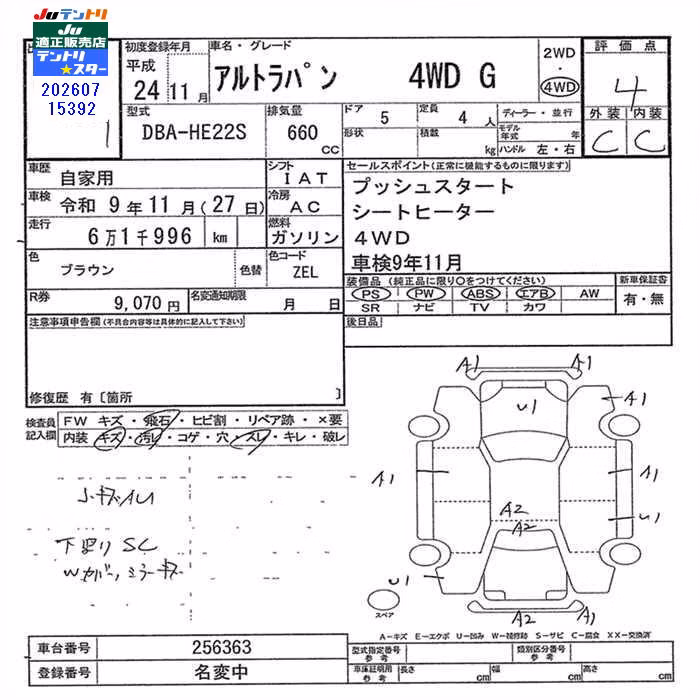 JUテントリ
JU
適正販売店
テントリ
★スター
202607
15392
1
初度登録年月
平成
24 11 月
車名・グレード
アルトラパン 4WD G
2WD
・
4WD
評価点
4
外装 内装
C C
型式
DBA-HE22S
排気量
660
cc
ドア
5
形状
定員
4 人
積載
kg
ディーラー・並行
モデル年式 年
ハンドル 左・右
車歴
自家用
シフト
IAT
車検
令和 9年 11月(27日)
冷房
AC
走行
6万1千996 km
燃料
ガソリン
色
ブラウン
色替
色コード
ZEL
R券
9,070円
名変通知期限
月 日
セールスポイント(正常に機能するものに限ります)
プッシュスタート
シートヒーター
4WD
車検9年11月
装備品(純正品に限り〇をつけてください)
PS PW ABS エアB AW
SR ナビ TV カワ
新車保証書
有・無
後日品
注意事項申告欄(不具合内容等は具体的に記入して下さい)
修復歴 有〔箇所 〕
検査員
記入欄
FW キズ・飛石・ヒビ割・リペア跡・×要
内装 キズ・汚レ・コゲ・穴・スレ・キレ・破レ
下廻りSC
A1 A1
A1
U1
A1
A1
U1
A2
A2
U1
A2 A1
スペア
A-キズ E-エクボ U-凹み W-補修跡 S-サビ C-腐食 XX-交換済
車台番号 256363
登録番号 名変中
型式指定番号
参考
類別区分番号
参考
車庫証明用
参考
長さ cm 幅 cm 高さ cm